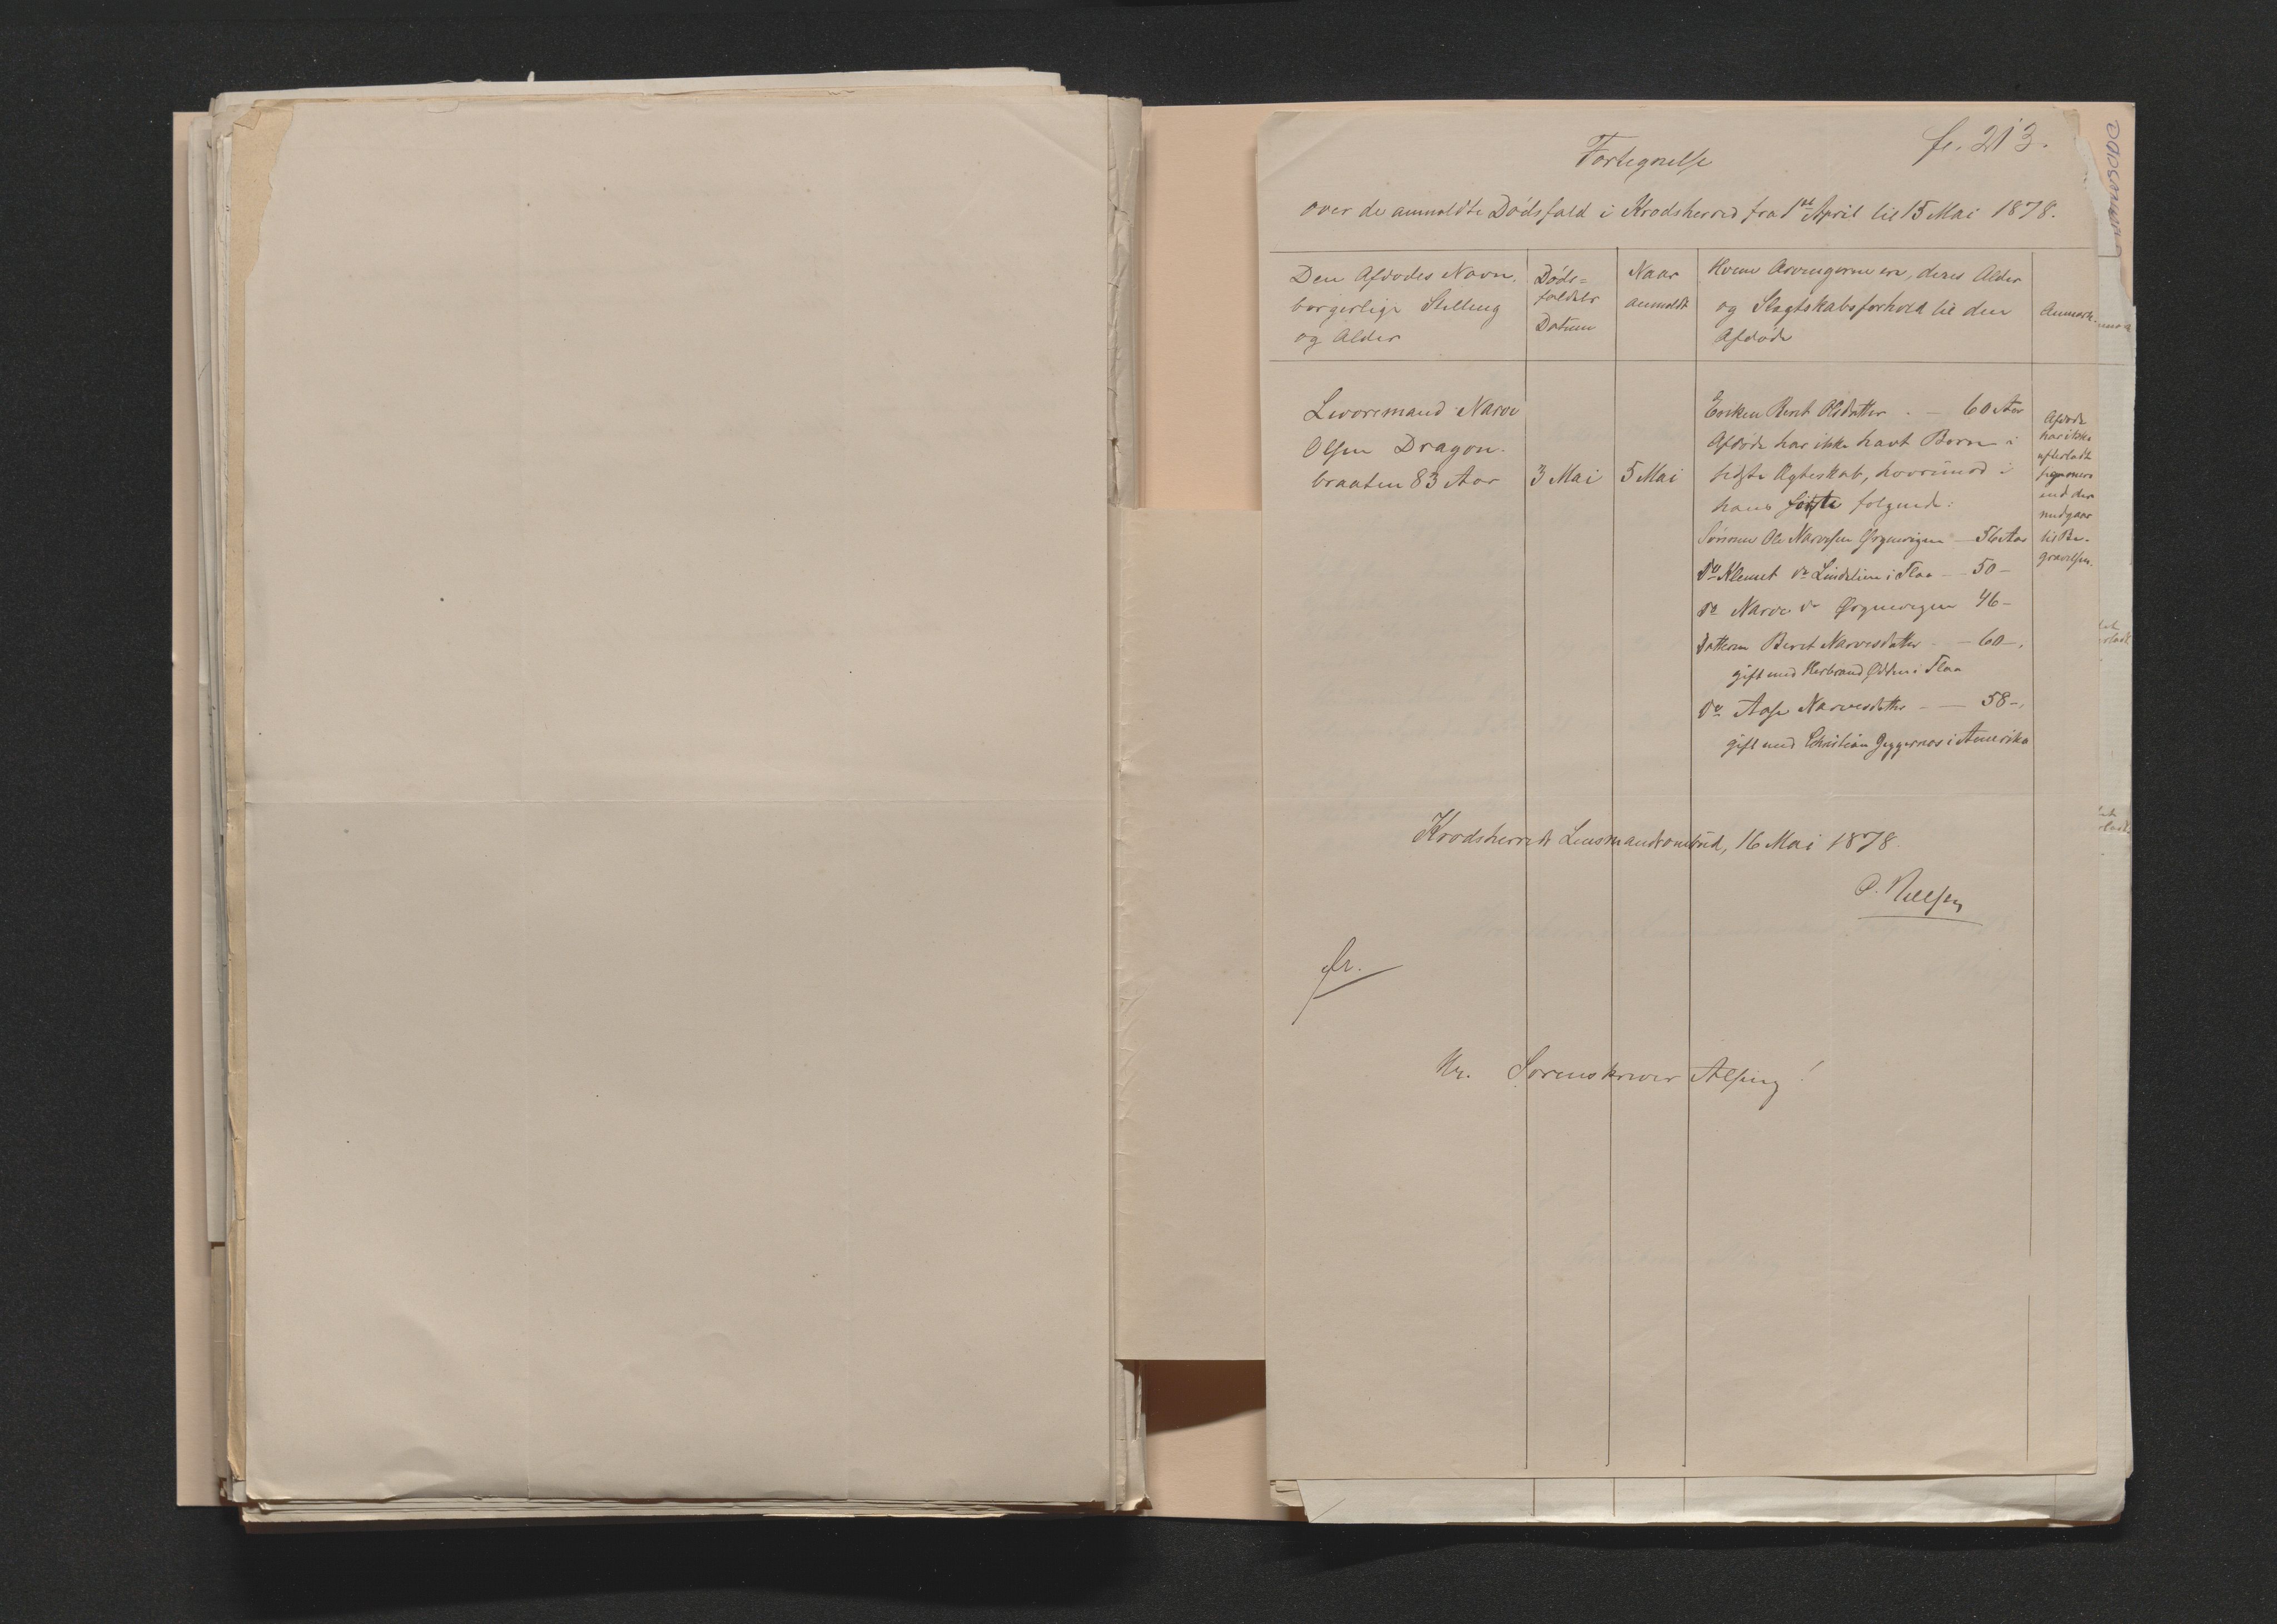 fr. 213.
Fortegnelse
over de anmeldte Dödsfald i Krodsherred fra 1ste April til 15 Mai 1878.
Den Afdödes Navn,
borgerlige Stilling
og Alder
Döds=
faldets
Datum
Naar
anmeldt
Hvem Arvingerne ere, deres Alder
og Slegtskabsforhold til den
Afdöde
Anmærk.
Livöremand Narve
Olsen Dragon-
braaten 83 Aar
3 Mai
5 Mai
Enken Berit Olsdatter . — 60 Aar
Afdöde har ikke havt Börn i
sidste Ægteskab, hvorimod i
hans förste følgende:
Sönnen Ole Narvesen Ørgenvigen — 56 Aar
Do Klemet do Lindelien i Flaa — 50 —
do Narve do Ørgenvigen 46 —
Datteren Berit Narvesdatter — 60 —,
gift med Herbrand Ødden i Flaa
do Aase Narvesdatter — — 58 —,
gift med Christian Gyggernæs i Amerika
Afdöde
har ikke
efterladt
sig mere
end der
medgaar
til Be-
gravelsen.
Krodsherreds Lensmandsombud, 16 Mai 1878.
O. Nilsen
Hr. Sorenskriver Alsing!